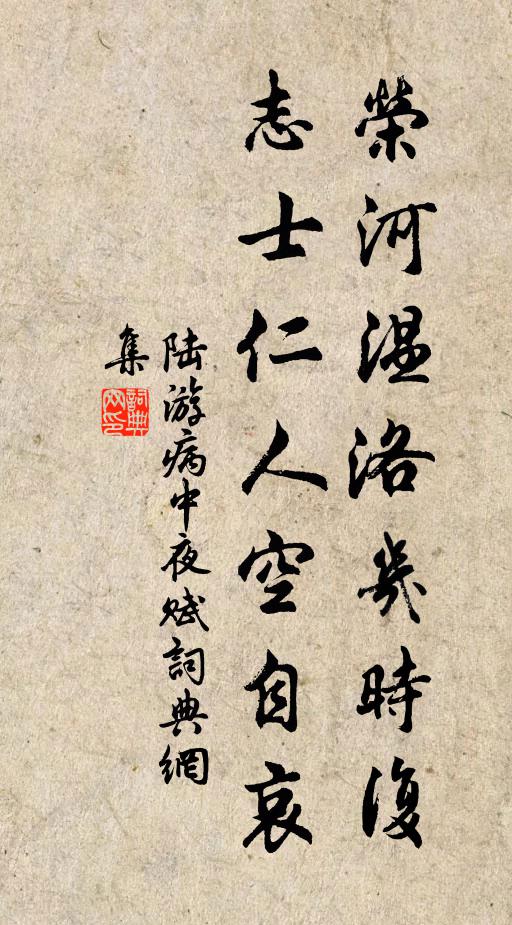 榮河溫洛幾時復
志士仁人空自哀
陆游病中夜赋詞典網
集
詞典
网印